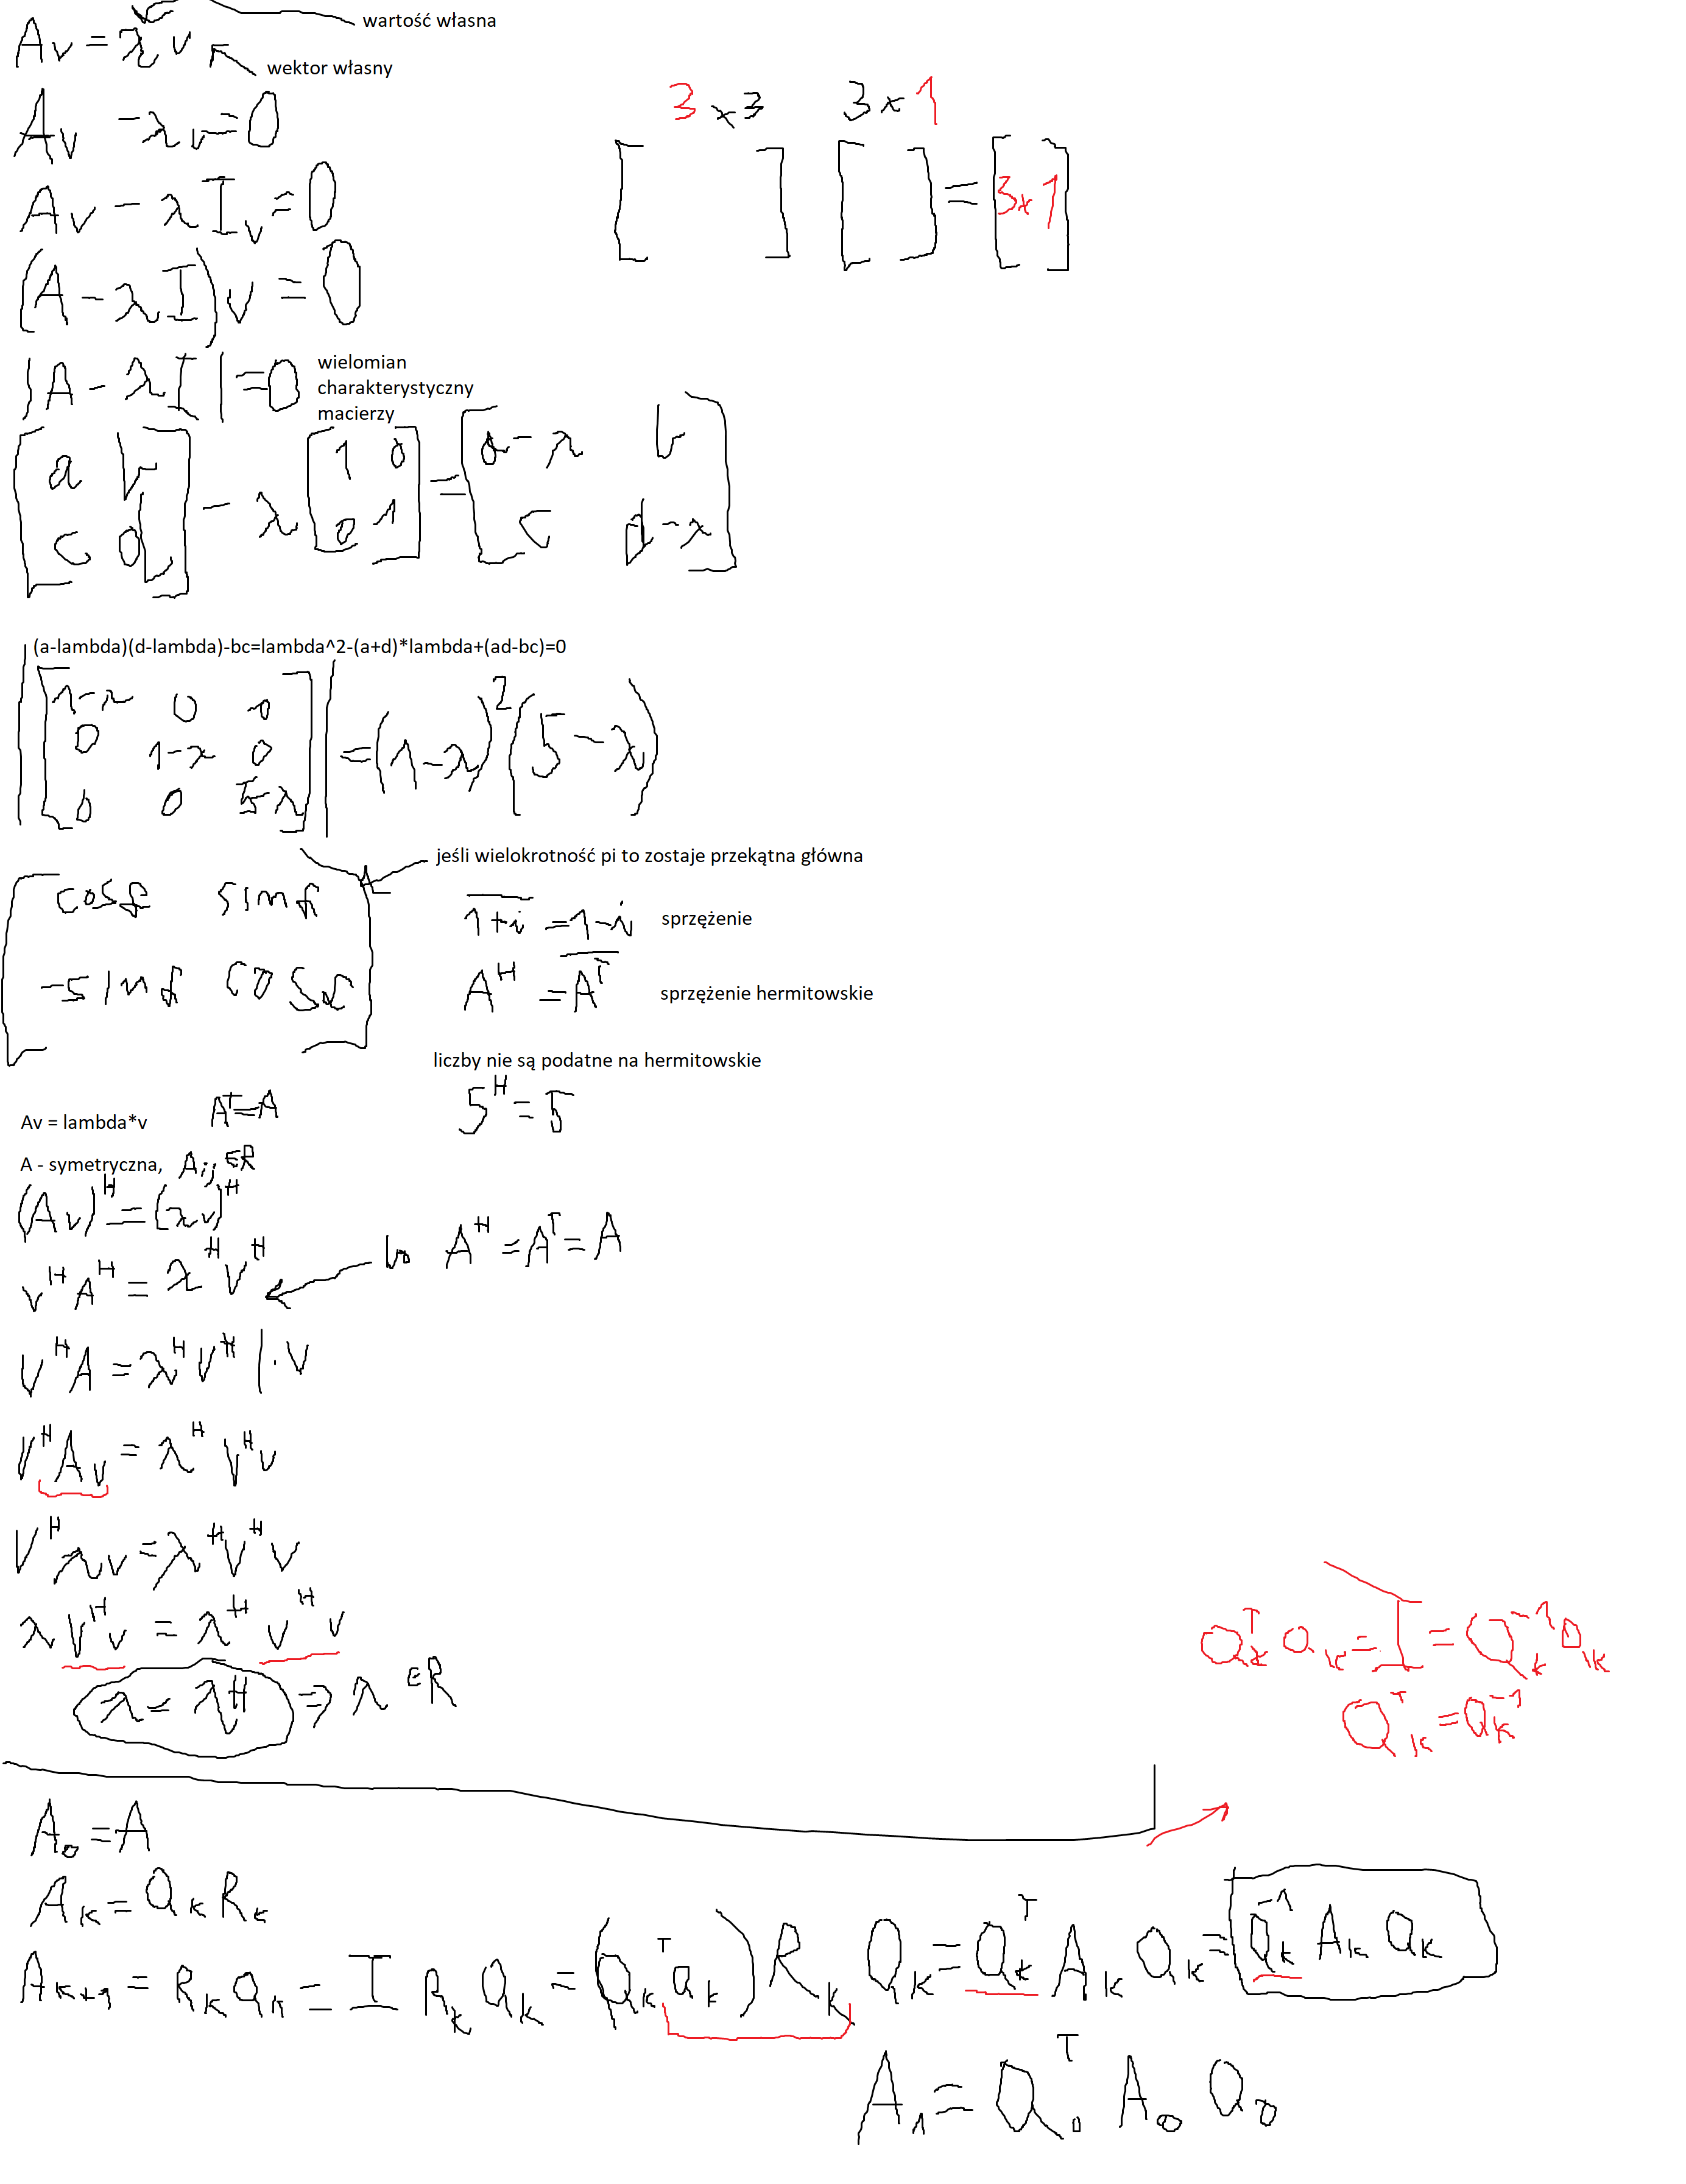 wartość własna
Av = λv
wektor własny
Av - λv = 0
3x3 3x1
Av - λIv = 0
[ ] [ ] = [3x1]
(A - λI)v = 0
|A - λI| = 0
wielomian
charakterystyczny
macierzy
[a b] - λ[1 0] = [a-λ b]
[c d] [0 1] [c d-λ]
(a-lambda)(d-lambda)-bc=lambda^2-(a+d)*lambda+(ad-bc)=0
|[1-λ 0 0
0 1-λ 0
0 0 5-λ]| = (1-λ)²(5-λ)
jeśli wielokrotność pi to zostaje przekątna główna
[cosf sinf
-sinf cosf]
1+i = 1-i sprzężenie
Aᴴ = Aᵀ sprzężenie hermitowskie
liczby nie są podatne na hermitowskie
5ᴴ = 5
Av = lambda*v Aᵀ=A
A - symetryczna, Aij ∈R
(Av)ᴴ = (λv)ᴴ
vᴴAᴴ = λᴴvᴴ bo Aᴴ = Aᵀ = A
vᴴA = λᴴvᴴ |·v
vᴴAv = λᴴvᴴv
vᴴλv = λᴴvᴴv
λvᴴv = λᴴvᴴv
λ = λᴴ ⇒ λ ∈R
QₖᵀQₖ = I = Qₖ⁻¹Qₖ
Qₖᵀ = Qₖ⁻¹
A₀ = A
Aₖ = QₖRₖ
Aₖ₊₁ = RₖQₖ = I RₖQₖ = (QₖᵀQₖ)RₖQₖ = QₖᵀAₖQₖ = Qₖ⁻¹AₖQₖ
A₁ = Q₀ᵀA₀Q₀